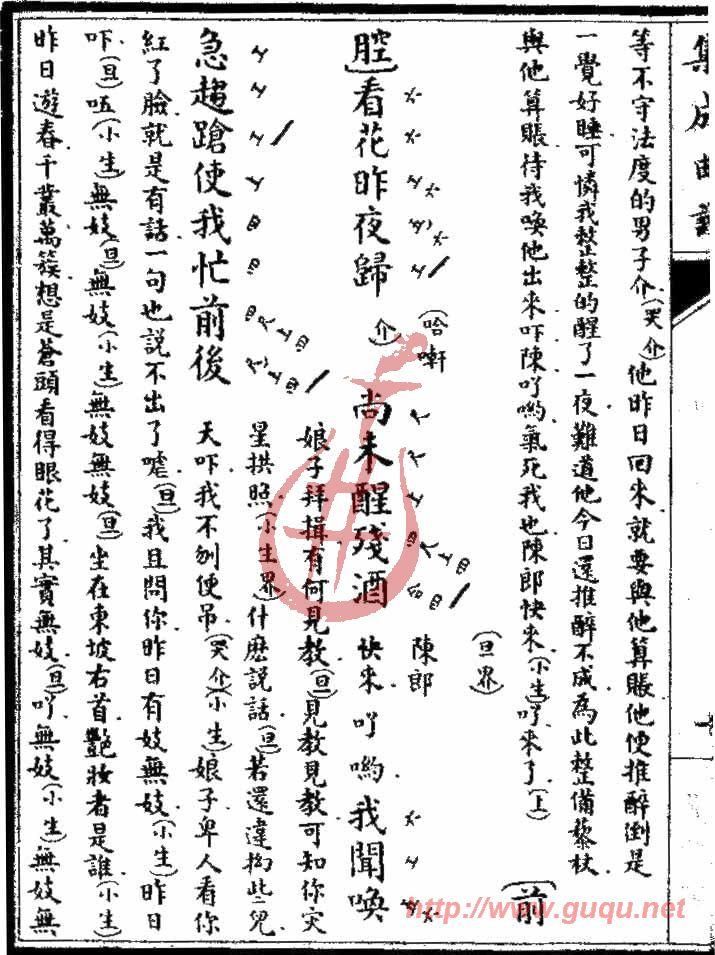 集成曲譜
等不守法度的男子介(哭介)他昨日回來就要與他算賬他便推醉倒是
一覺好睡可憐我整整的醒了一夜難道他今日還推醉不成為此整備藜杖
與他算賬待我喚他出來吓陳吖喲氣死我也陳郎快來(小生)吖來了(上)
(前
腔)看花昨夜歸(哈軒介)尚未醒殘酒(旦界)陳郎快來吖喲我聞喚
急趨蹌使我忙前後
娘子拜揖有何見教(旦)見教見教可知你灾
星拱照(小生界)什麽説話(旦)若還違拗此兒
天吓我不刎便吊(哭介)(小生)娘子卑人看你
紅了臉就是有話一句也説不出了嘘(旦)我且問你昨日有妓無妓(小生)昨日
吓(旦)唔(小生)無妓(旦)無妓(小生)無妓無妓(旦)坐在東坡右首艷妝者是誰(小生)
昨日遊春千叢萬簇想是蒼頭看得眼花了其實無妓(旦)吖無妓(小生)無妓無
http://www.guqu.net